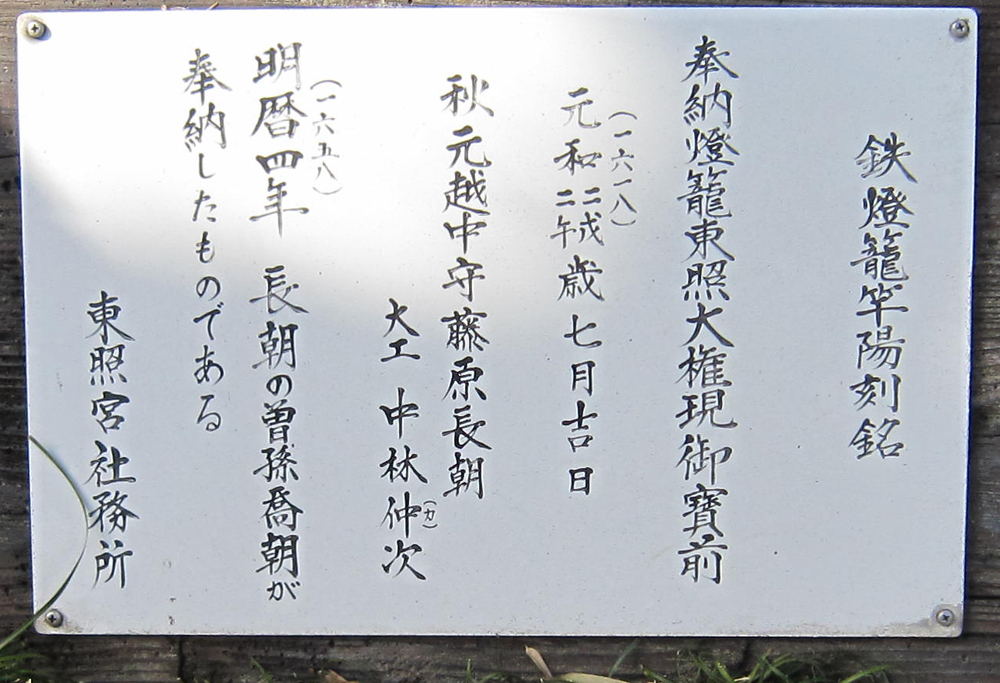 鉄燈籠竿陽刻銘
奉納燈籠東照大権現御寶前
(一六一八)
元和二二戊午歳七月吉日
秋元越中守藤原長朝
大工 中林仲(カ)次
(一六五八)
明暦四年 長朝の曽孫喬朝が
奉納したものである
東照宮社務所